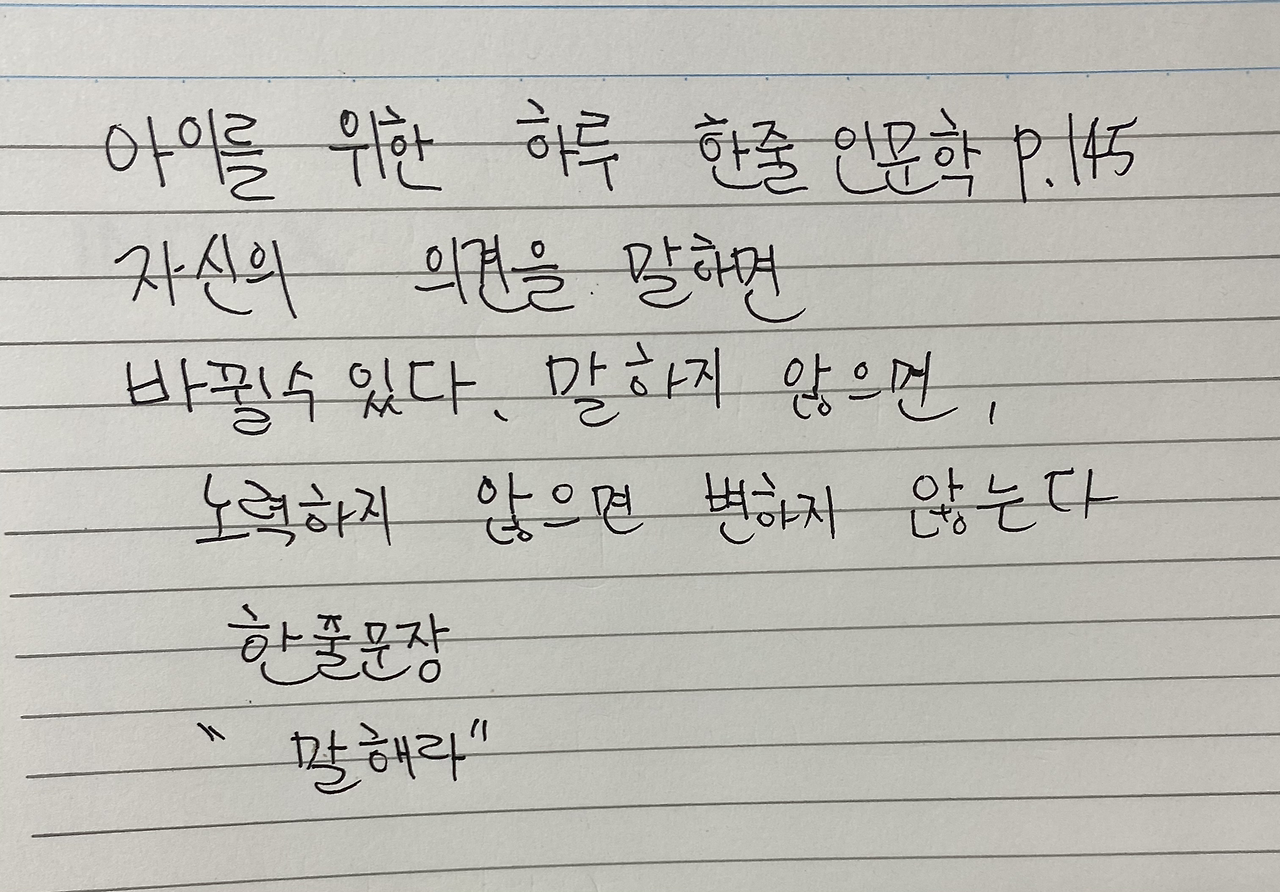 아이를 위한 하루 한줄 인문학 p.145
자신의 의견을 말하면
바뀔수 있다. 말하지 않으면,
노력하지 않으면 변하지 않는다
한줄문장
" 말해라"